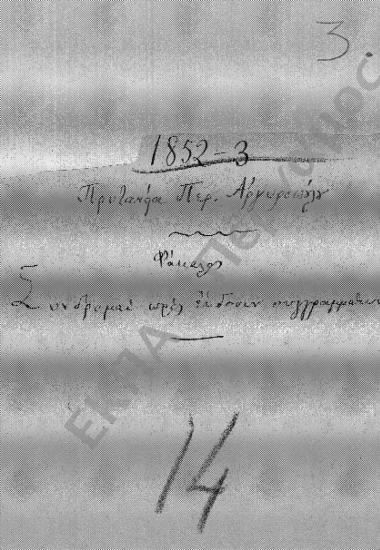 3.
1852-3
Πρυτανεία Περ. Αργυροπούλου
Φάκελος
Συνδρομαί πρός έκδοσιν συγγραμμάτων
14
ΕΚΠΑ Πέργαμος